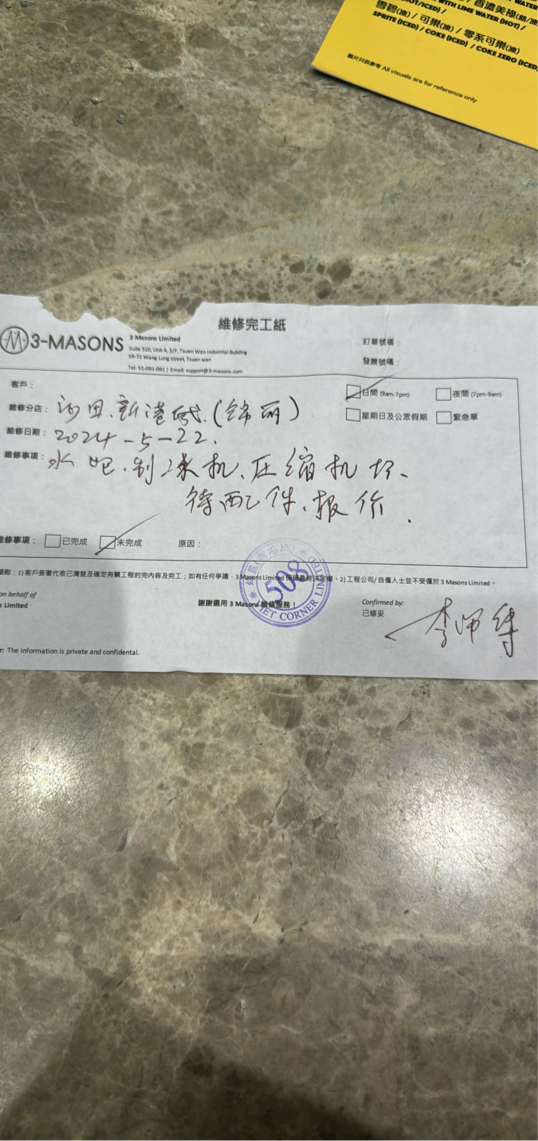 WITH LIME WATER (HOT) /
雪碧(凍) / 可樂(凍) / 零系可樂(凍)
SPRITE (ICED) / COKE (ICED) / COKE ZERO (ICED)
圖片只供參考 All visuals are for reference only
維修完工紙
3-MASONS
3 Masons Limited
Suite 520, Unit A, 5/F, Tsuen Wan Industrial Building
59-71 Wang Lung street, Tsuen wan
Tel: 51-091-091 | Email: support@3-masons.com
訂單號碼：
發票號碼：
客戶：
日間 (9am-7pm) 夜間 (7pm-9am)
維修分店： 沙田.新港城.(錦丽)
星期日及公眾假期 緊急單
維修日期： 2024-5-22.
維修事項： 水吧.制冰机、压缩机坏、
待配件.报价.
維修事項： 已完成 未完成 原因：
1)客戶簽署代表已清楚及確定有關工程的完內容及完工；如有任何爭議，3 Masons Limited 保留最終決定權。2) 工程公司/自僱人士並不受僱於 3 Masons Limited。
508
CORNER LIM
on behalf of
s Limited
謝謝選用 3 Masons 維修服務！
Confirmed by:
已修妥
李师傅
r: The information is private and confidential.